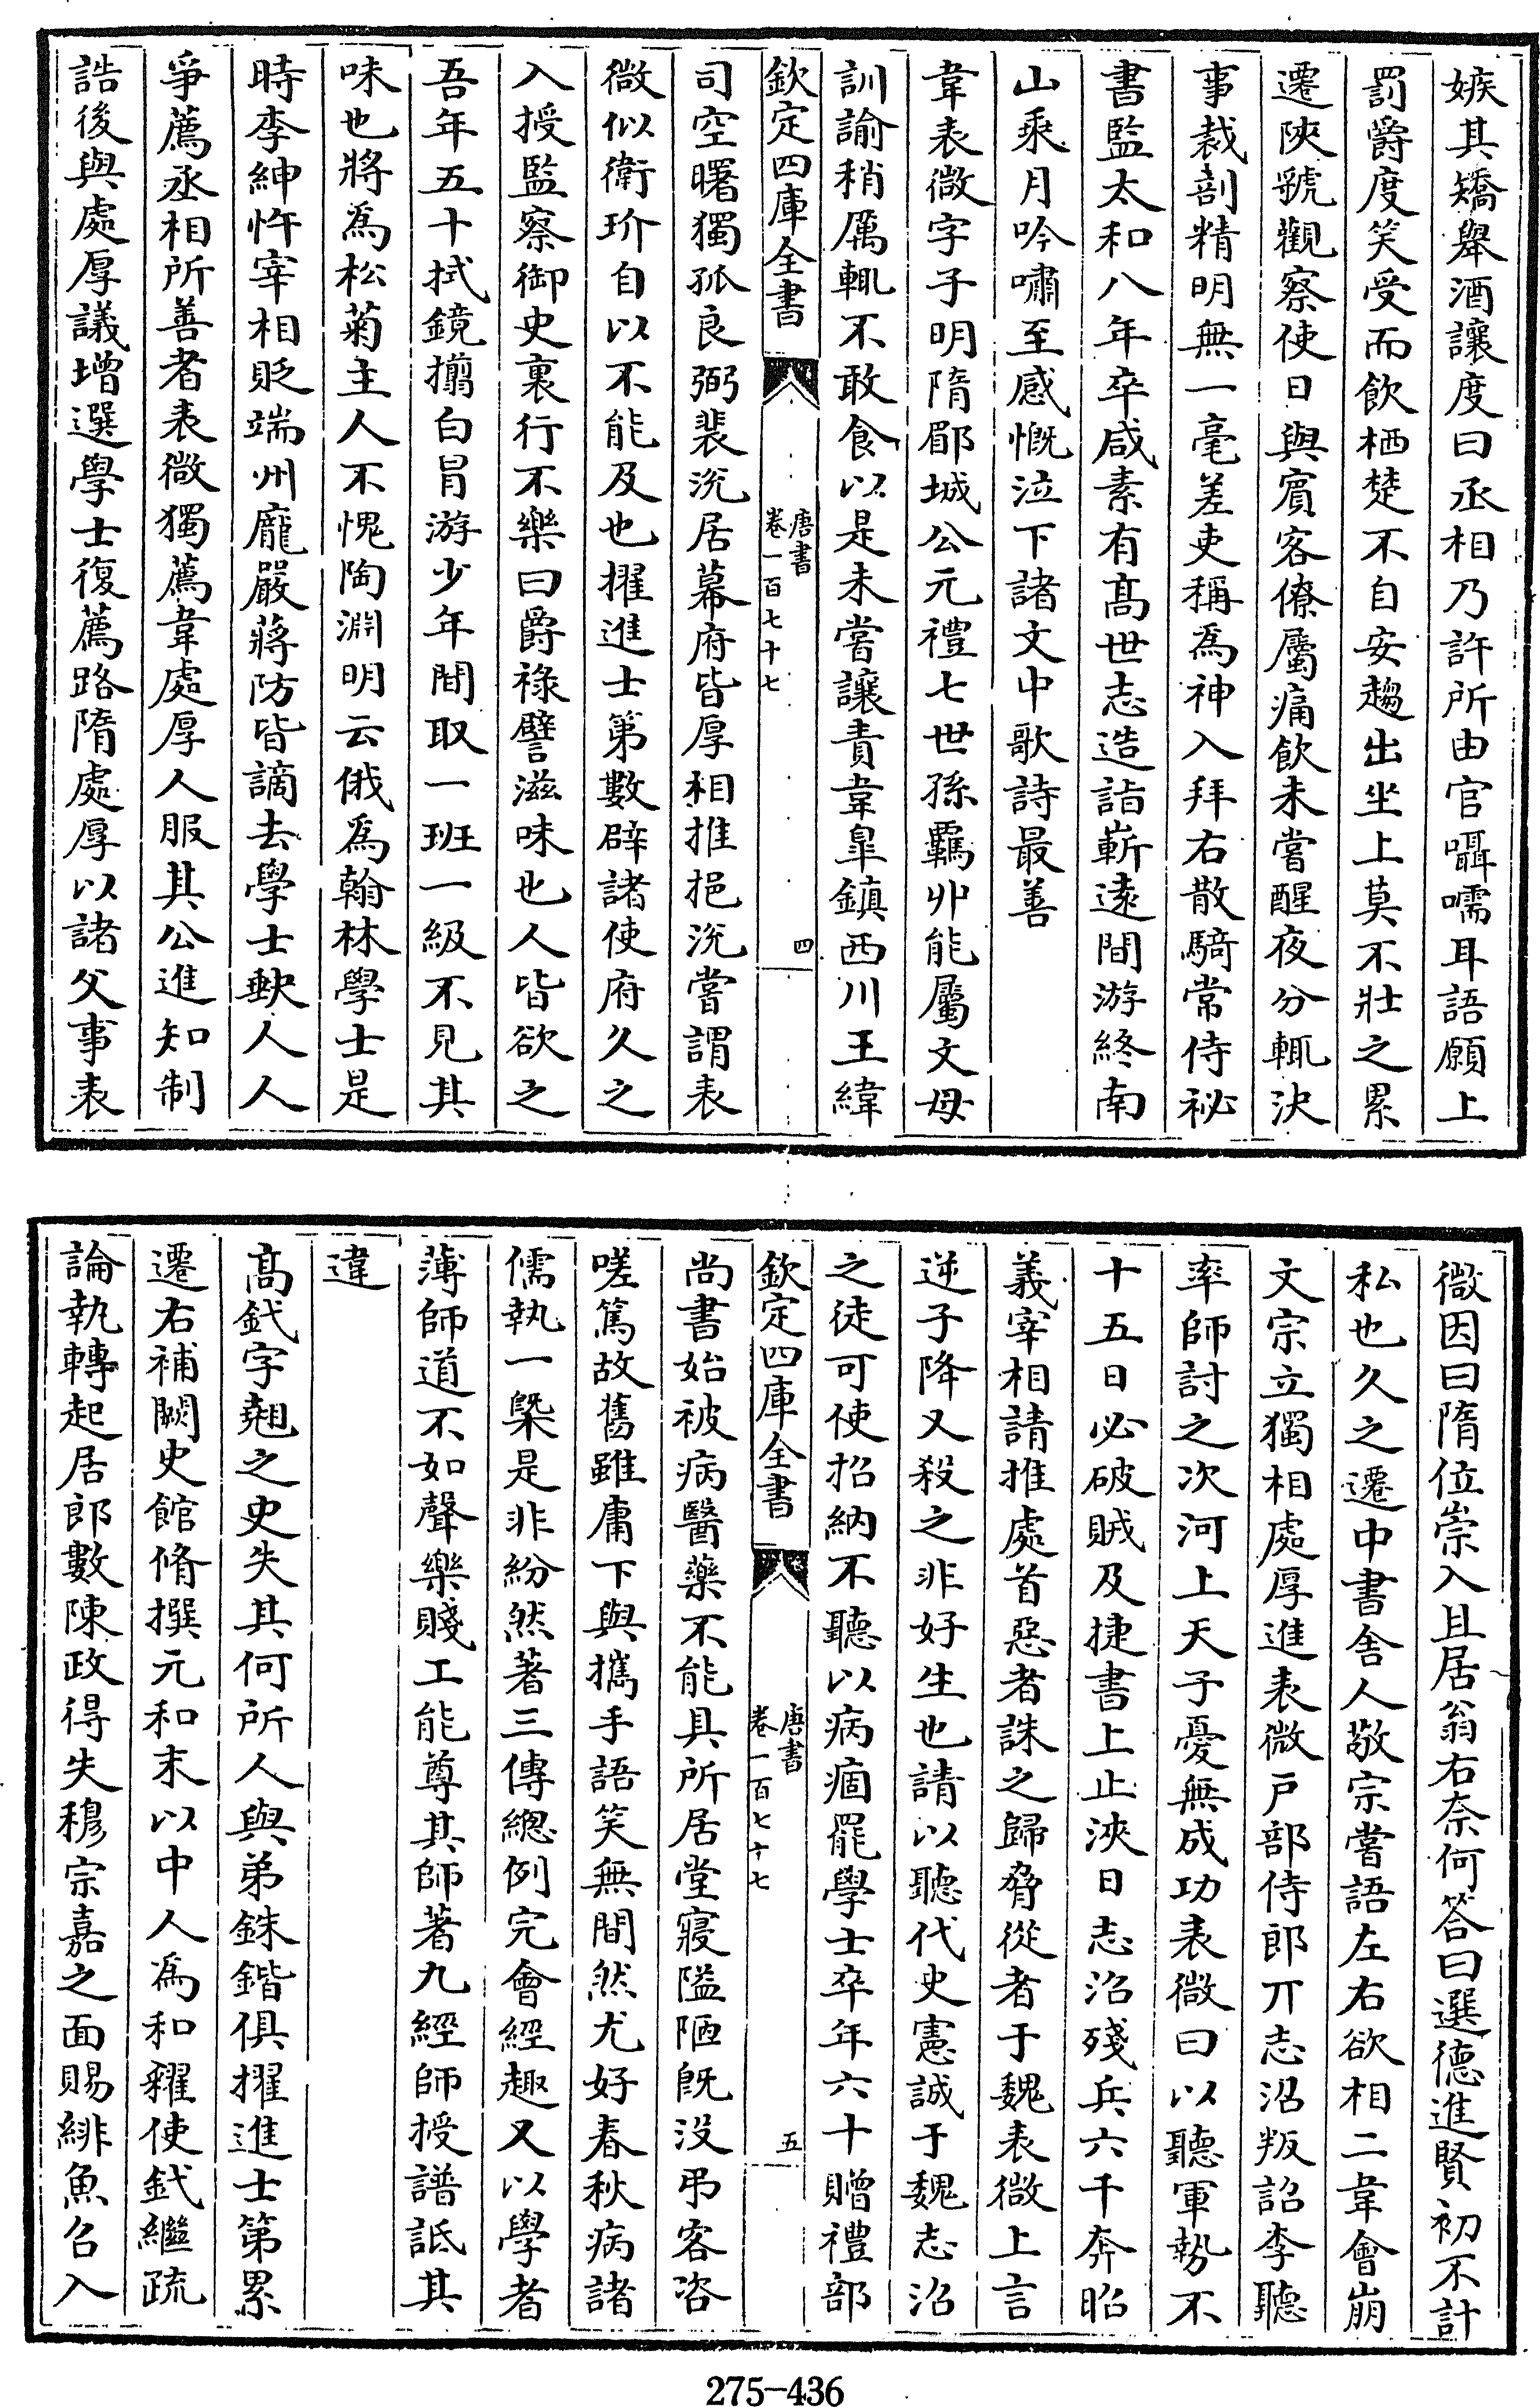 嫉其矯舉酒讓度曰丞相乃許所由官囁嚅耳語願上
罰爵度笑受而飲栖楚不自安趨出坐上莫不壯之累
遷陝虢觀察使日與賓客僚屬痛飲未嘗醒夜分輒決
事裁剖精明無一毫差吏稱為神入拜右散騎常侍祕
書監太和八年卒咸素有髙世志造詣嶄逺間游終南
山乘月吟嘯至感慨泣下諸文中歌詩最善
韋表微字子明隋郿城公元禮七世孫羈丱能屬文母
訓諭稍厲輒不敢食以是未嘗讓責韋臯鎮西川王緯
欽定四庫全書
唐書
卷一百七十七
四
司空曙獨孤良弼裴涗居幕府皆厚相推挹涗嘗謂表
微似衛玠自以不能及也擢進士第數辟諸使府久之
入授監察御史裏行不樂曰爵祿譬滋味也人皆欲之
吾年五十拭鏡搢白冐游少年間取一班一級不見其
味也將為松菊主人不愧陶淵明云俄爲翰林學士是
時李紳忤宰相貶端州龐嚴蔣防皆謫去學士缺人人
爭薦丞相所善者表微獨薦韋處厚人服其公進知制
誥後與處厚議增選學士復薦路隋處厚以諸父事表
微因曰隋位崇入且居翁右奈何答曰選德進賢初不計
私也久之遷中書舍人敬宗嘗語左右欲相二韋會崩
文宗立獨相處厚進表微戸部侍郎丌志沼叛詔李聽
率師討之次河上天子憂無成功表微曰以聽軍勢不
十五日必破賊及捷書上止浹日志沼殘兵六千奔昭
義宰相請推處首惡者誅之歸脅從者于魏表微上言
逆子降又殺之非好生也請以聽代史憲誠于魏志沼
之徒可使招納不聽以病痼罷學士卒年六十贈禮部
欽定四庫全書
唐書
卷一百七十七
五
尚書始被病醫藥不能具所居堂寢隘陋既没弔客咨
嗟篤故舊雖庸下與攜手語笑無間然尤好春秋病諸
儒執一槩是非紛然著三傳總例完會經趣又以學者
薄師道不如聲樂賤工能尊其師著九經師授譜詆其
違
髙釴字翹之史失其何所人與弟銖鍇俱擢進士第累
遷右補闕史館脩撰元和末以中人爲和糴使釴繼疏
論執轉起居郎數陳政得失穆宗嘉之面賜緋魚召入
275-436